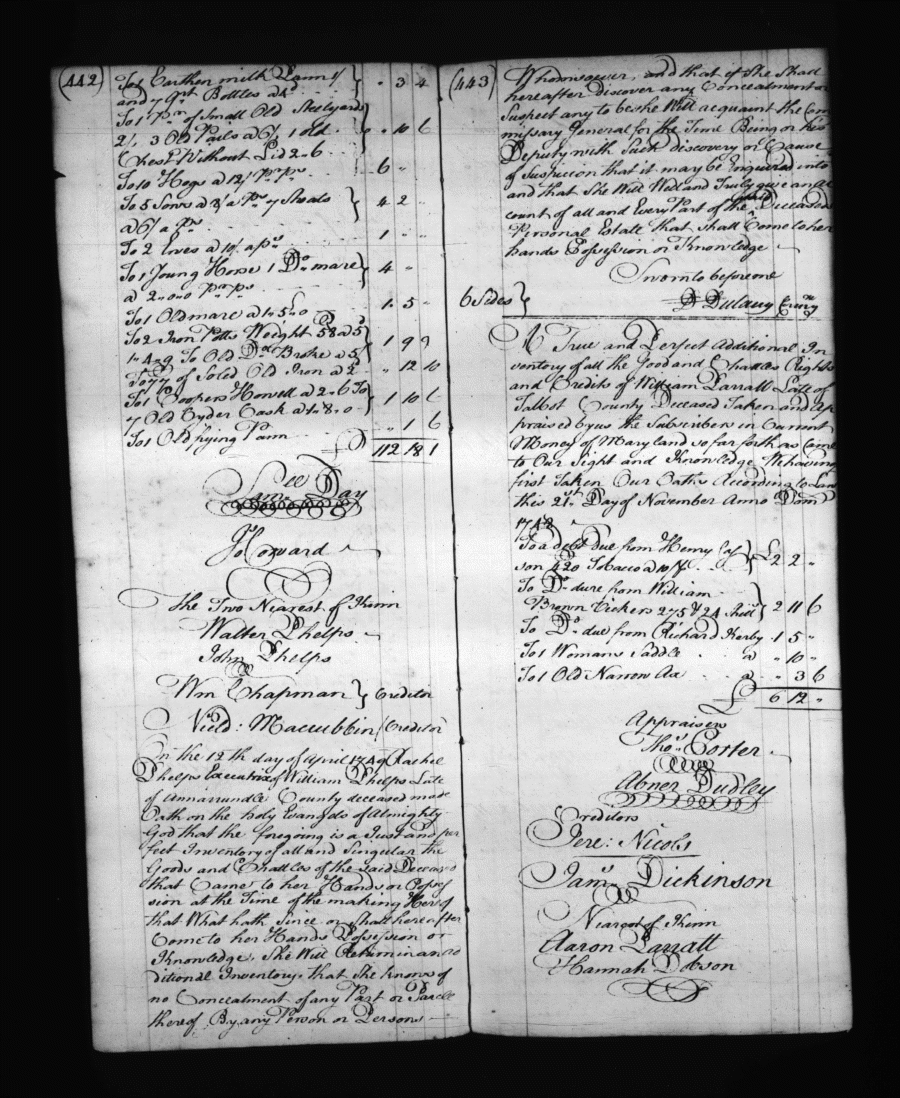 (442)
To 1 Earthen milk Pann 1/ } " 3 4
and 7 Qrt Bottles a 4d
To 1 pr of Small Old Steelyards
2/. 3 Old Pails a 6/. 1 old } 0 " 10 6
Chest Without Lid 2 " 6
To 10 Hogs a 12/ pr ps 6 " "
To 5 Sows a 8/ a ps 7 Shoats } 4 2 "
a 6/ a ps
To 2 Ewes a 10/ a ps 1 " "
To 1 Young Horse 1 Do mare } 4 " "
a 2 " 0 " 0 pr ps
To 1 Old mare a 1 " 5 " 0 1 " 5 "
To 2 Iron Potts Weight 58 a 5 } 1 9 9
1 " 4 " 9 To Old Do Broke a 5/
To 77 of Soled Old Iron a 2 " 12 10
To 1 Coopers Howell a 2 " 6 To } 1 10 6
7 Old Cyder Cask a 1 " 8 " 0
To 1 Old frying Pann " 1 6
£ 112 18 1
Day
Jos Howard
The Two Nearest of Kinn
Walter Phelps
John Phelps
Wm Chapman } Creditor
Nichd: Maccubbin / Creditor
On the 12th day of April 1749 Rachel
Phelps Executrix of William Phelps Late
of Annarrundle County deceased made
Oath on the holy Evangels of Almighty
God that the foregoing is a Just and per
fect Inventory of all and Singular the
Goods and Chattles of the said Deceased
that Came to her Hands or Posses
sion at the Time of the making Hereof
that What hath Since or shall hereafter
Come to her Hands Possession or
Knowledge, She Will Return in an ad
ditional Inventory, that She knows of
no Concealment of any Part or Parcell
thereof By any Person or Persons
(443)
Whomsoever, and that if She Shall
hereafter discover any Concealment or
Suspect any to be She Will acquaint the Com
missary General for the Time Being or his
Deputy with Such discovery or Cause
of Suspicion that it may be Enquired into
and that She Will Well and Truly give an Ac
count of all and Every Part of the said Deceaseds
Personal Estate that shall Come to her
hands Possession or Knowledge
Sworn to before me
6 Sides } D Dulany
A True and Perfect Additional In
ventory of all the Good and Chattles Rights
and Credits of William Parratt Late of
Talbot County Deceased Taken and Ap
praised by us the Subscribers in Current
Money of Maryland so far forth as Come
to Our Sight and Knowledge We having
first Taken Our Oaths According to Law
this 21st Day of November Anno Dom
1748
To a debt due from Henry
son 420 Tobacco a 10/ } £2 2 "
To Do due from William
Brown Vickers 275 & 24 Shill } 2 11 6
To Do due from Richard Kerby 1 5 "
To 1 Womans Saddle a " 10 "
To 1 Old Narrow Ax a " 3 6
£ 6 12 "
Appraisers
Thos Porter
Abner Dudley
Creditors
Jere: Nicols
Jams Dickinson
Nearest of Kinn
Aaron Parratt
Hannah Dobson